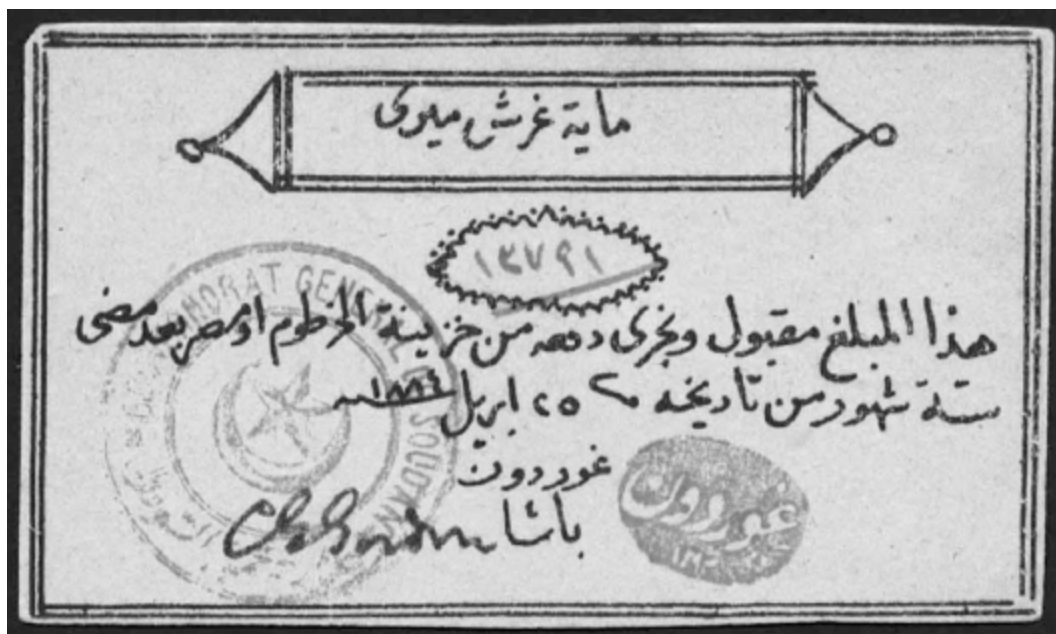 ماية غرش ميرى
١٢٧٩١
هذا المبلغ مقبول ويجرى دفعه من خزينة الخرطوم او مصر بعد مضى
ستة شهور من تاريخه ٢٥ ابريل ١٨٨٤
غوردون
باشا
GENERAL
SOUDAN
غوردون